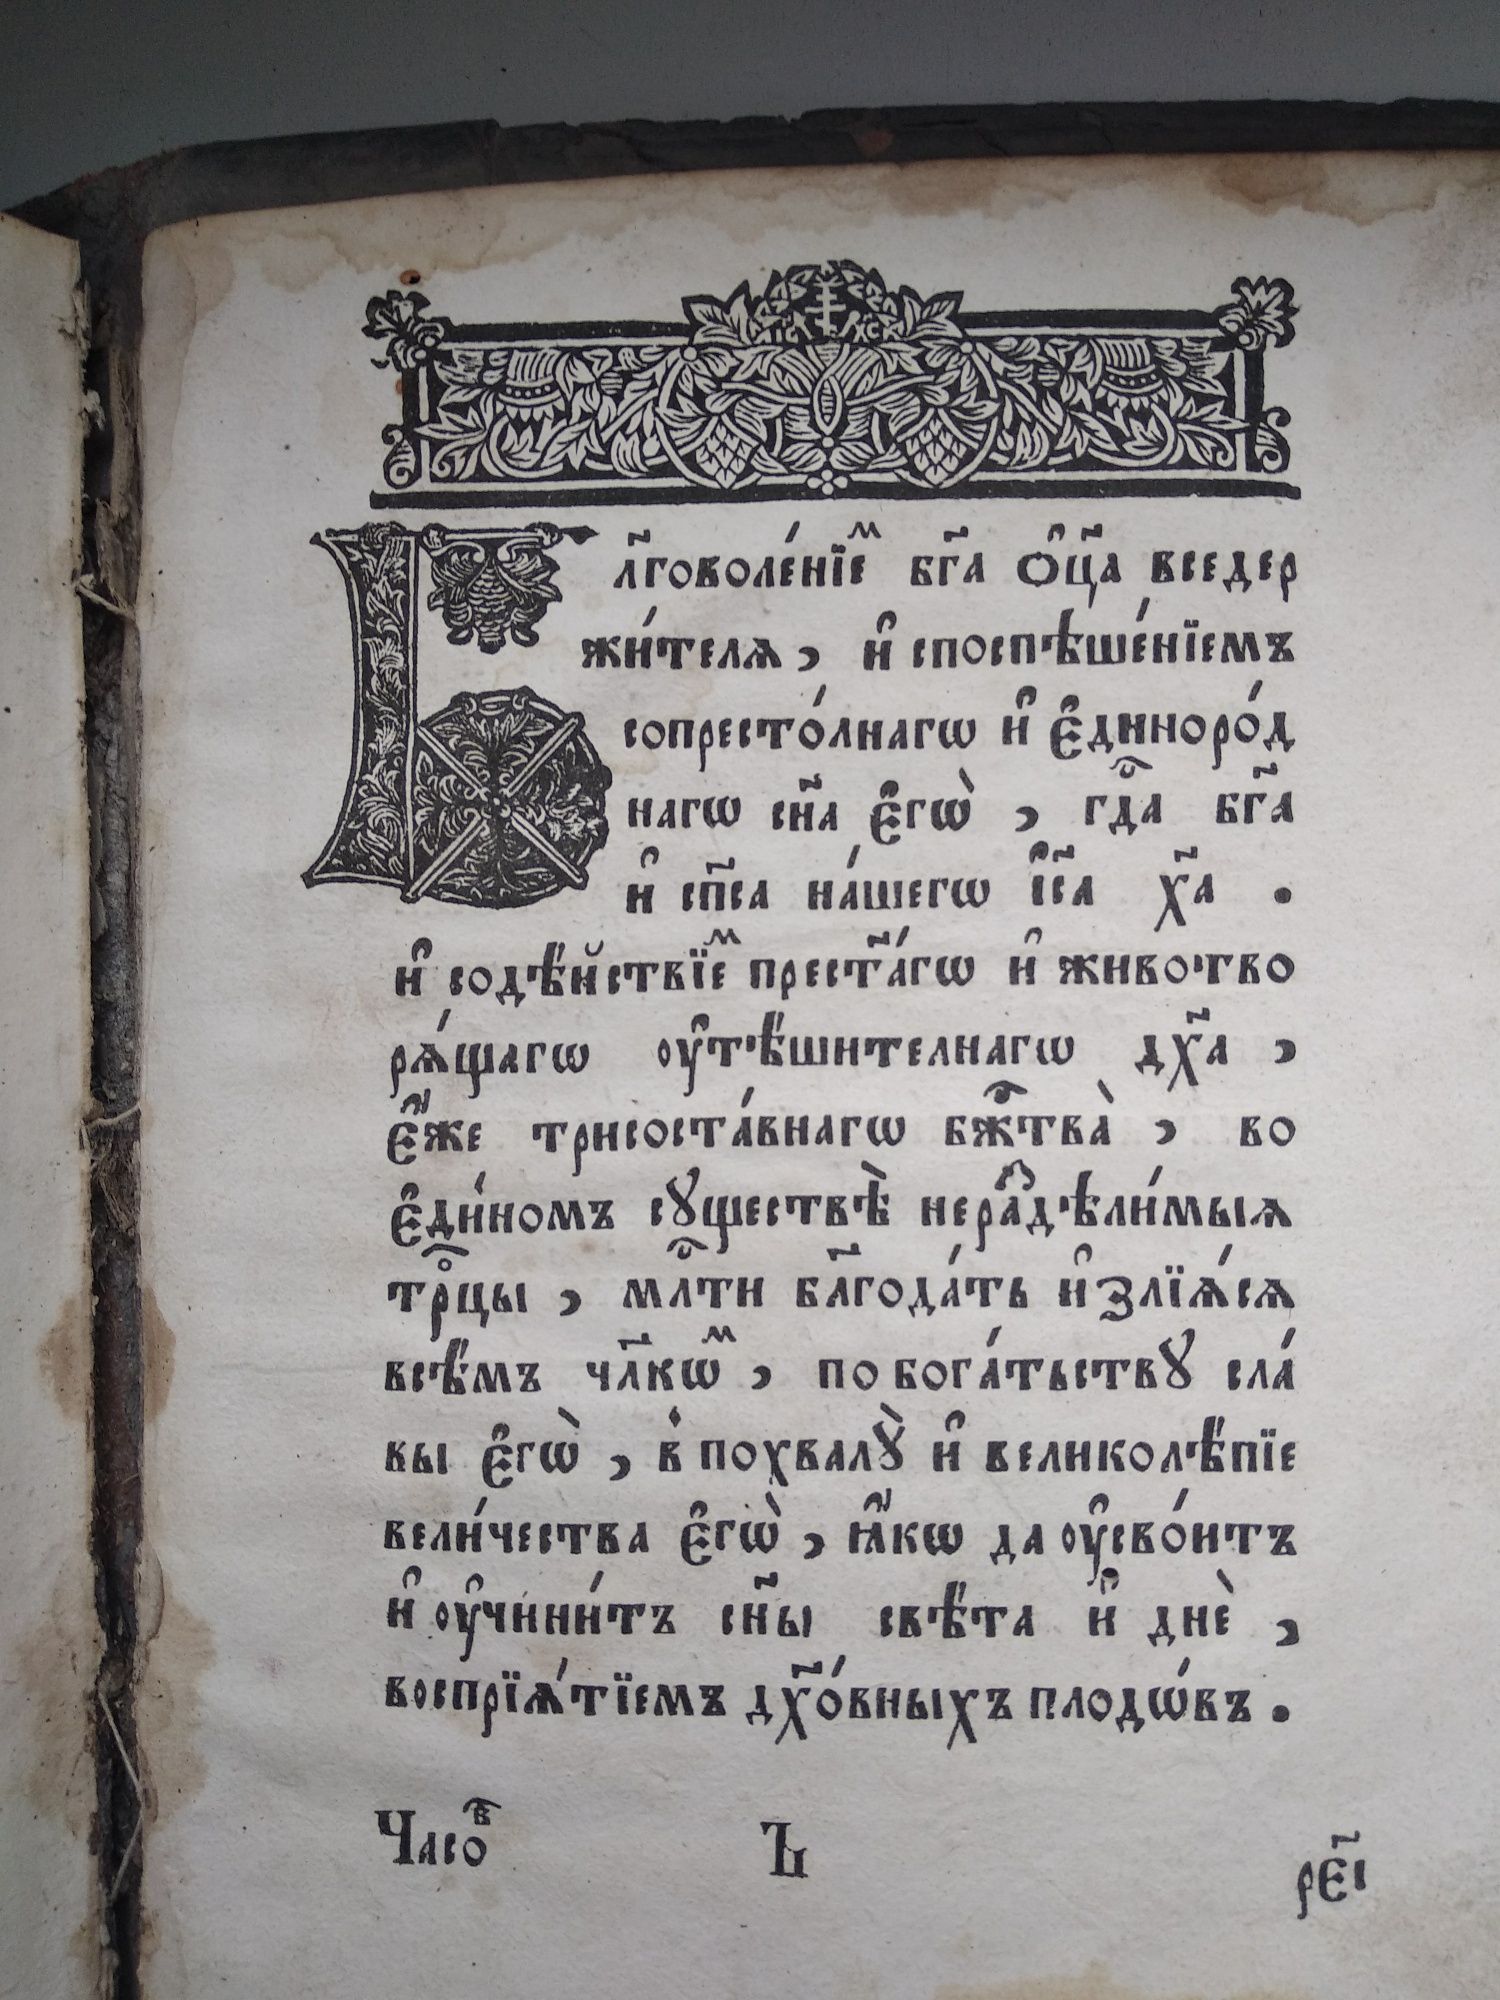 І҃С Х҃С
Бл҃говоле́нїеⷨ бг҃а ѻ҆ц҃а вседер
жи́телѧ, и҆ споспѣше́нїемъ
сопресто́лнагѡ и҆ є҆диноро́д
нагѡ сн҃а є҆гѡ̀, гдⷭ҇а бг҃а
и҆ сп҃са на́шегѡ і҆с҃а х҃а .
и҆ содѣ́йствїеⷨ прест҃а́гѡ и҆ живото
рѧ́щагѡ ᲂу҆тѣ́шителнагѡ дх҃а,
є҆́же трисоста́внагѡ бжⷭ҇тва̀, во
є҆ди́номъ сꙋществѣ̀ нераⷥдѣли́мыѧ
трⷪ҇цы, млⷭ҇ти бл҃года́ть и҆злїѧ́сѧ
всѣ́мъ чл҃кѡⷨ, по бога́тьствꙋ сла́
вы є҆гѡ̀, в похвалꙋ̀ и҆ великолѣ́пїе
вели́чества є҆гѡ̀, ꙗ҆́кѡ да ᲂу҆сво́итъ
и҆ ᲂу҆чини́тъ сн҃ы свѣ́та и҆ днѐ,
воспрїѧ́тїемъ дх҃о́вныхъ плодѡ́въ .
Часоⷡ҇ Ъі р҃єі